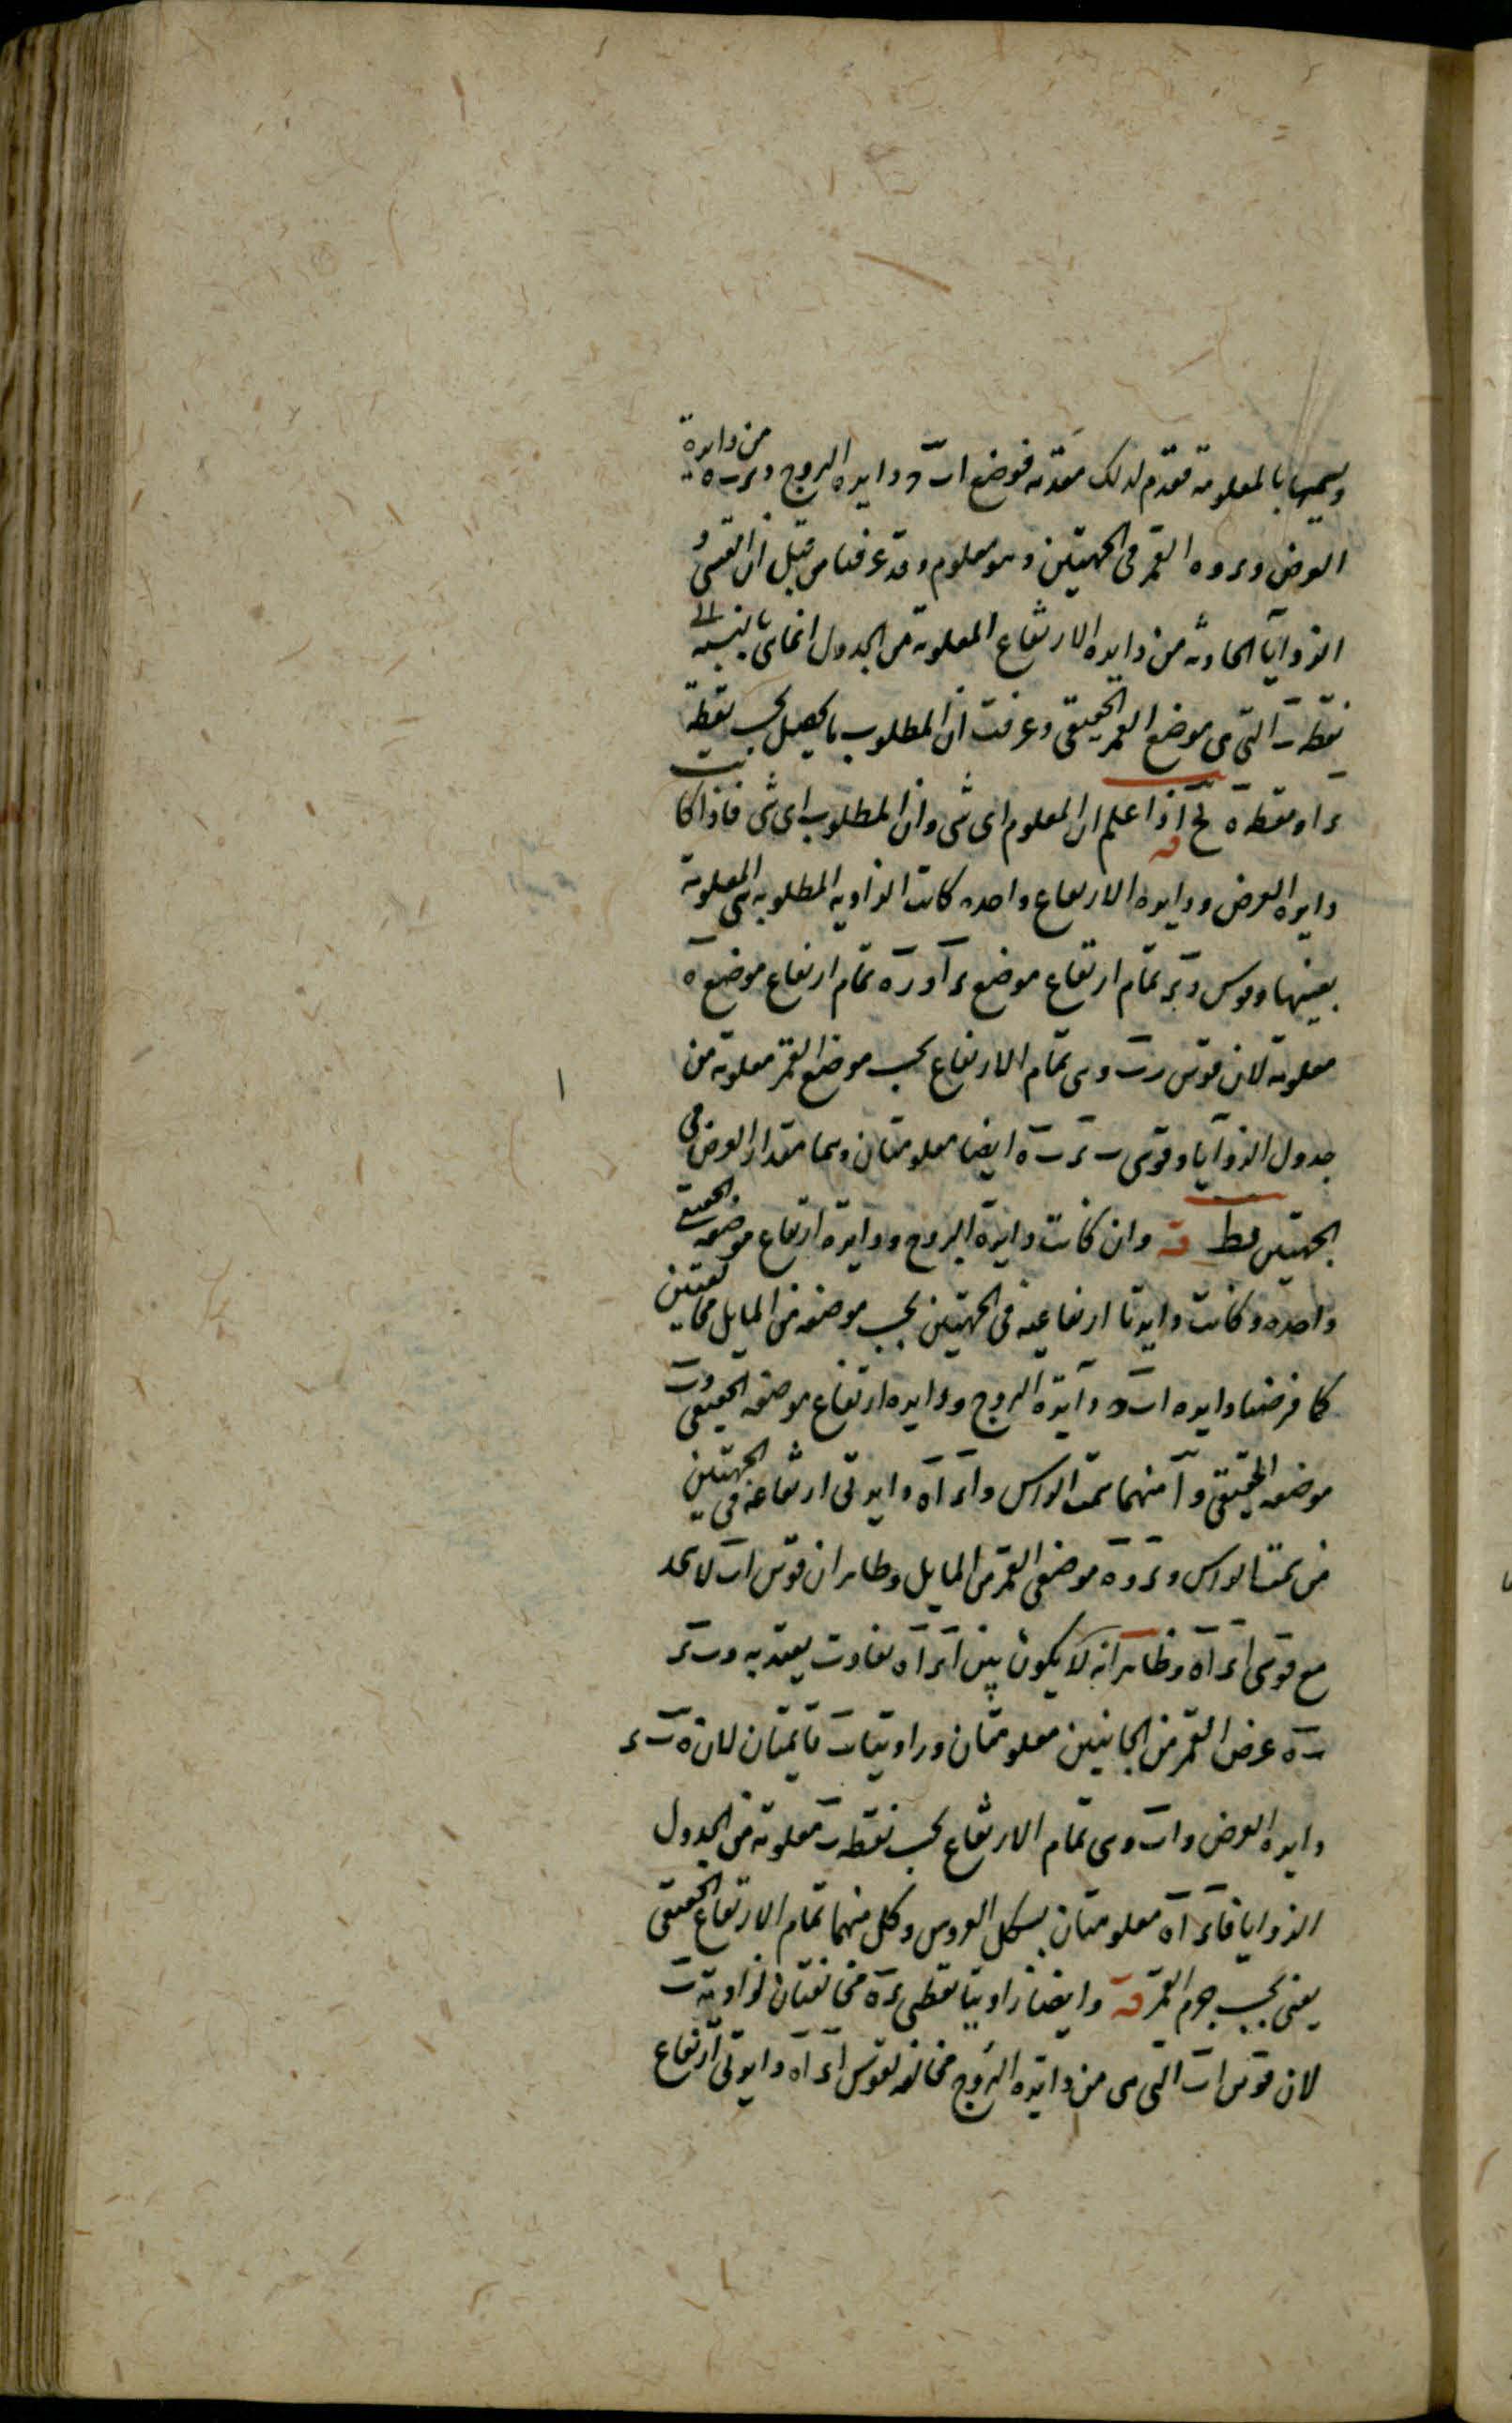 ويسميها بالمعلومة فقدم لذلك مقدمة فوضع اب د دايرة البروج و ر ب ه من دايرة
العرض و ر و ه القمر في الجهتين وهو معلوم وقد عرفنا من قبل ان القسي و
الزوايا الحادثة من دايرة الارتفاع المعلومة من الجدول انما هي بالنسبة الى
نقطة ب التي هي موضع القمر الحقيقي وعرفت ان المطلوب ما يحصل بحسب نقطة
ر او نقطة ه اذا علم ان المعلوم اي شي وان المطلوب اي شي فاذا كانت
دايرة العرض ودايرة الارتفاع واحدة كانت الزاوية المطلوبة هي المعلومة
بعينها وقوس ر تمام ارتفاع موضع ر او ر ه تمام ارتفاع موضع ه
معلومة لان قوس ر ب وهي تمام الارتفاع بحسب موضع القمر معلومة من
جدول الزوايا وقوسي ب ر ب ه ايضا معلومتان وهما مقدار العرض في
الجهتين فقط قه وان كانت دايرة البروج ودايرة ارتفاع موضعه الحقيقي
واحدة وكانت دايرتا ارتفاعيه في الجهتين بحسب موضعه من المايل مختلفتين
كما فرضنا دايرة اب د دايرة البروج ودايرة ارتفاع موضعه الحقيقي و ب
موضعه الحقيقي و ا منهما سمت الراس و ا ر ا ه دايرتي ارتفاعه في الجهتين
من سمت الراس و ر و ه موضعي القمر من المايل وظاهر ان قوس اب لا تتحد
مع قوسي ا ر ا ه وظاهر انه لا يكون بين ا ر ا ه تفاوت يعتد به و ب ر
ب ه عرض القمر من الجانبين معلومتان وزاويتا ب قايمتان لان ه ب ر
دايرة العرض و اب وهي تمام الارتفاع بحسب نقطة ب معلومة من الجدول
الزوايا فا ر ا ه معلومتان بشكل العروس وكل منهما تمام الارتفاع الحقيقي
يعني بحسب جرم القمر قه وايضا زاويتا نقطتي ر ه مخالفتان لزاوية ب
لان قوس اب التي هي من دايرة البروج مخالفة لقوسي ا ر ا ه دايرتي ارتفاع